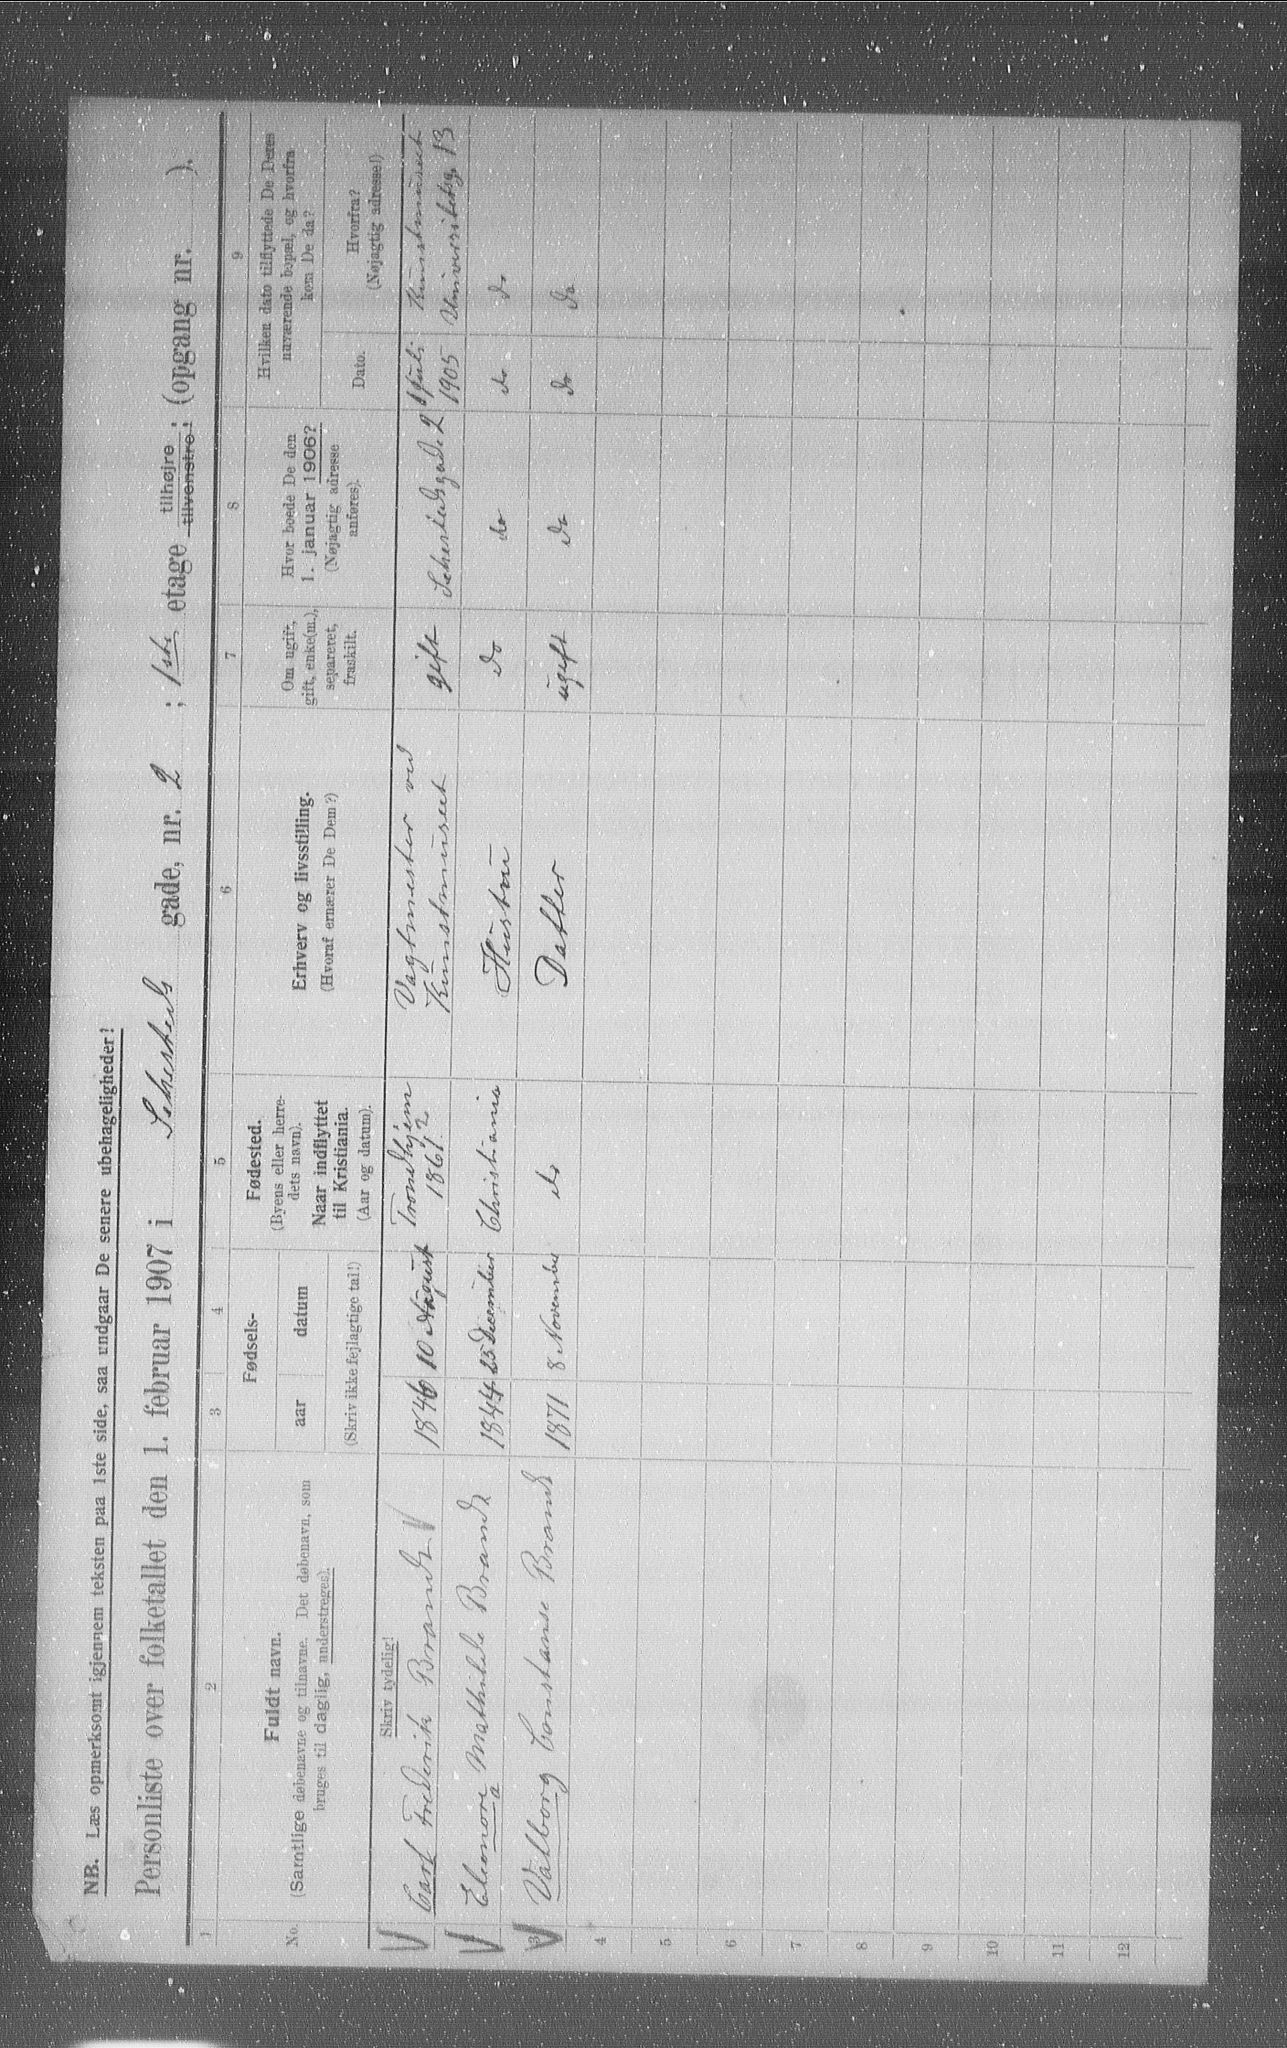 NB. Læs opmerksomt igjennem teksten paa 1ste side, saa undgaar De senere ubehageligheder!
Personliste over folketallet den 1. februar 1907 i Sehesteds gade, nr. 2 ; 1ste etage tilhøjre ; (opgang nr. ).
tilvenstre ;
1 2 3 4 5 6 7 8 9
No.
Fuldt navn.
(Samtlige døbenavne og tilnavne. Det døbenavn, som
bruges til daglig, understreges).
Skriv tydelig!
Fødsels-
aar datum
(Skriv ikke fejlagtige tal!)
Fødested.
(Byens eller herre-
dets navn).
Naar indflyttet
til Kristiania.
(Aar og datum).
Erhverv og livsstilling.
(Hvoraf ernærer De Dem?)
Om ugift,
gift, enke(m.),
separeret,
fraskilt.
Hvor boede De den
1. januar 1906?
(Nøjagtig adresse
anføres).
Hvilken dato tilflyttede De Deres
nuværende bopæl, og hvorfra
kom De da?
Dato.
Hvorfra?
(Nøjagtig adresse!)
Carl Frederik Brandt 1846 10 August Trondhjem 1862 Vagtmester ved Kunstmuseet gift Sehestedsgade 2 1 Juli 1905 Kunstmuseet Universitetsg. 13
Eleonora Mathilde Brandt 1844 25 December Christiania Hustru do do do do
3 Valborg Constanse Brandt 1871 8 November do Datter ugift do do do
4
5
6
7
8
9
10
11
12